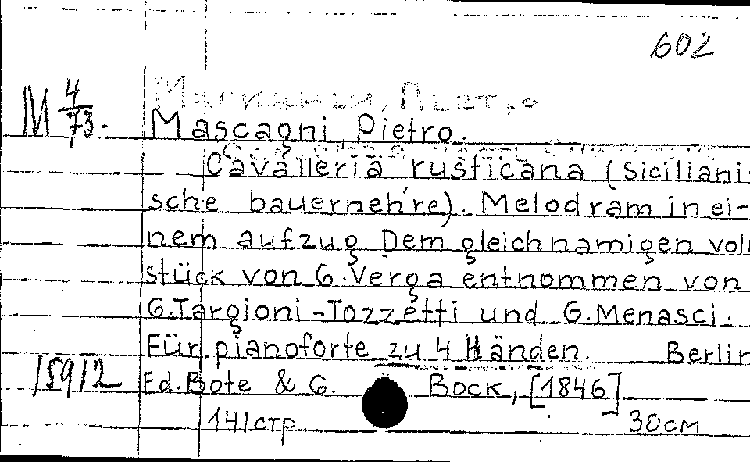 602
M 4/73.
Mascagni, Pietro.
Cavalleria rusticana (siciliani-
sche bauernehre). Melodram in ei-
nem aufzug Dem gleichnamigen vol
stück von G. Verga entnommen von
G. Targioni-Tozzetti und G. Menasci.
Für pianoforte zu 4 Händen. Berlin
15912 Ed. Bote & G. Bock, [1846]
141 стр 30 см